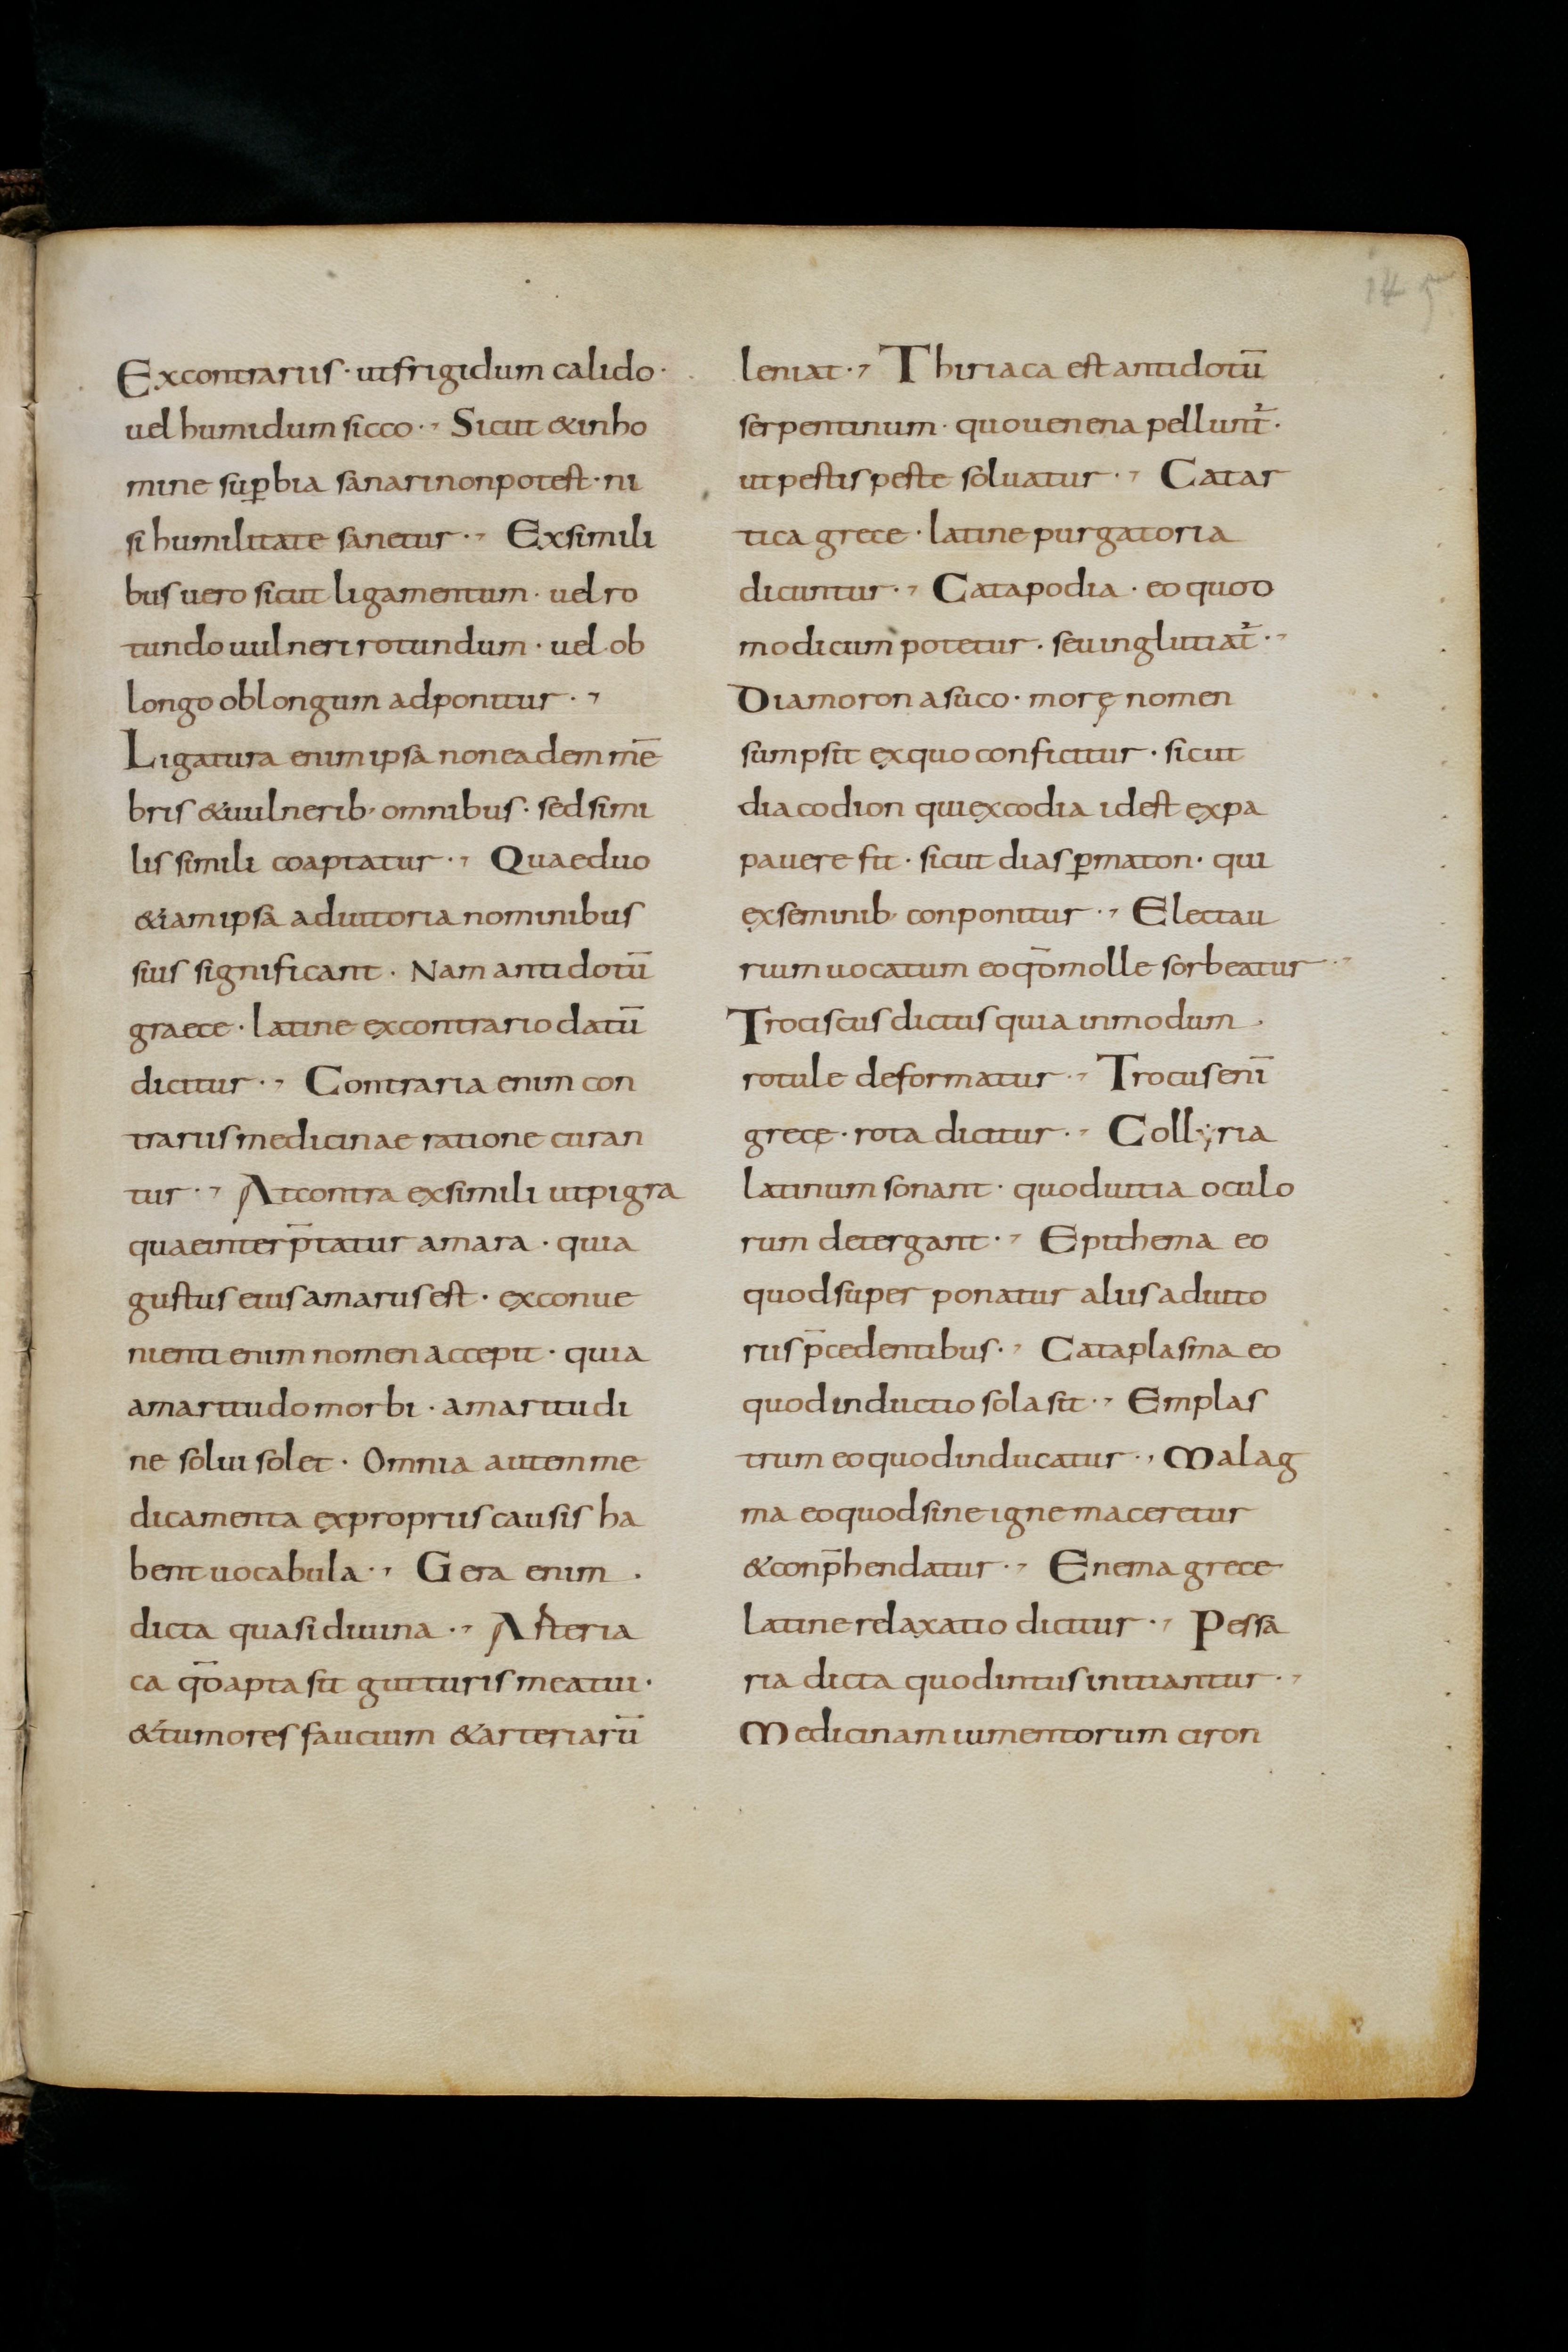 145
Excontrariis · utfrigidum calido ·
uel humidum sicco ·, Sicut &inho
mine sup̲bia sanarinonpotest · ni
si humilitate sanetur ·, Exsimili
bus uero sicut ligamentum · uel ro
tundo uulneri rotundum · uel ob
longo oblongum adponitur ·,
Ligatura enimipsa noneadem mē
bris &uulnerib; omnibus · sedsimi
lis simili coaptatur ·, Quaeduo
&iamipsa adiutoria nominibus
suis significant · Nam antidotū
graece · latine excontrario datū
dicitur ·, Contraria enim con
trariis medicinae ratione curan
tur ·, Atcontra exsimili utpigra
quaeinterp̄tatur amara · quia
gustus eius amarus est · exconue
nienti enim nomen accepit · quia
amaritudo morbi · amaritudi
ne solui solet · Omnia autem me
dicamenta expropriis causis ha
bent uocabula ·, Gera enim ·
dicta quasi diuina ·, Asteria
ca qd̄ apta sit gutturis meatui ·
&tumores faucium &arteriarū
leniat ·, Thiriaca est antidotū
serpentinum · quo uenena pellunt̄ ·
ut pestis peste soluatur ·, Catar
tica grece · latine purgatoria
dicuntur ·, Catapodia · eo quod
modicum potetur · seuinglutiat̄ ·,
Diamoron a suco · morę nomen
sumpsit ex quo conficitur · sicut
diacodion qui excodia idest expa
pauere fit · sicut diasp̲maton · qui
exseminib; conponitur ·, Electau
rium uocatum eo qd̄ molle sorbeatur ·,
Trociscus dictus quia inmodum ·
rotule deformatur ·, Trocus enī
gręcę · rota dicitur ·, Collẏria
latinum sonant · quod uitia oculo
rum detergant ·, Epithema eo
quod super ponatur aliis adiuto
riis p̄cedentibus ·, Cataplasma eo
quod inductio sola sit ·, Emplas
trum eo quod inducatur ·, Malag
ma eo quod sine igne maceretur
&conp̄hendatur ·, Enema grece
latine relaxatio dicitur ·, Pessa
ria dicta quod intus initiantur ·,
Medicinam iumentorum ciron